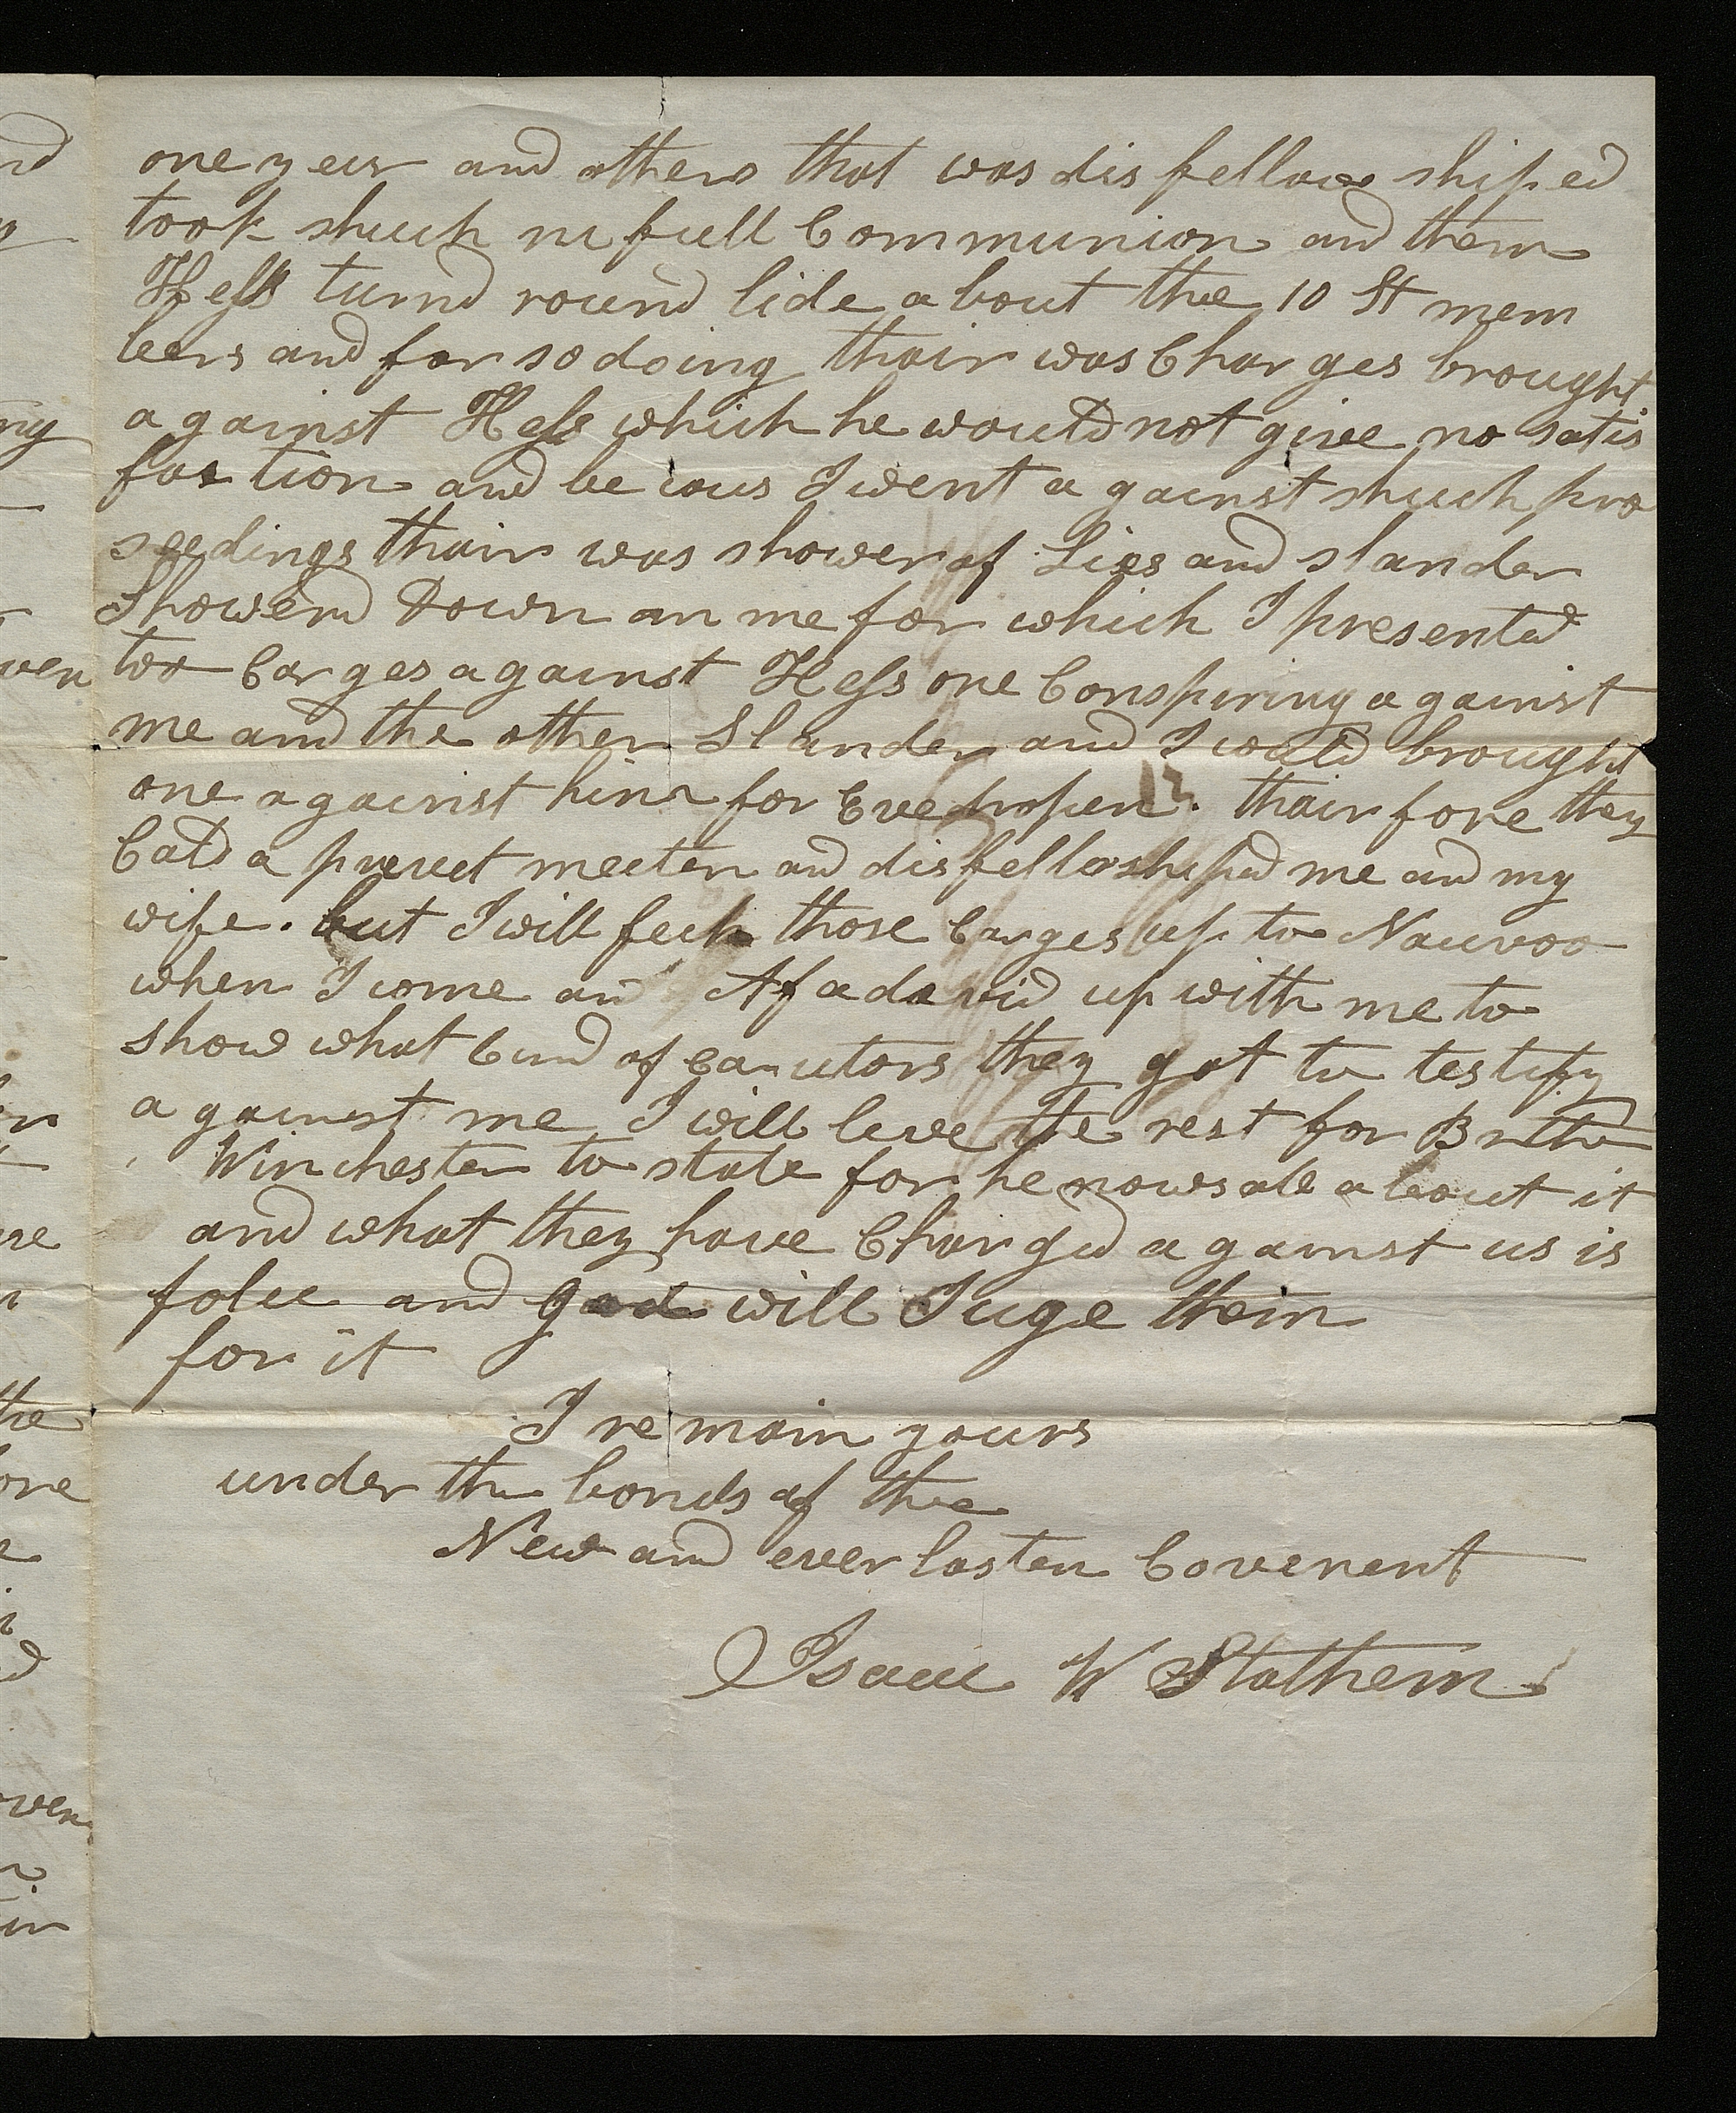 one year and others that was dis fellow shiped
took shuch in full Communion and them
Hess turnd round lide about the 10 St mem
bers and for so doing thair was Charges brought
against Hess which he would not give no satis
faction and be caus I went against shuch pro
seedings thair was shower of Lies and slander
Showerd Down on me for which I presented
two Carges against Hess one Conspiring against
me and the other Slander and I would brought
one against him for thairfore they
Cald a meeten and disfellowshiped me and my
wife. but I will fech those Carges up to Nauvoo
when I come and Afadavid up with me to
show what Cind of they got to testify
against me I will leve the rest for
Winchester to state for he nows all about it
and what they have Charged against us is
folce and god will Juge them
for it
I remain yours
under the bonds of the
New and everlasten Covenent
Isaac W Stathem
ny
wen
the
ore